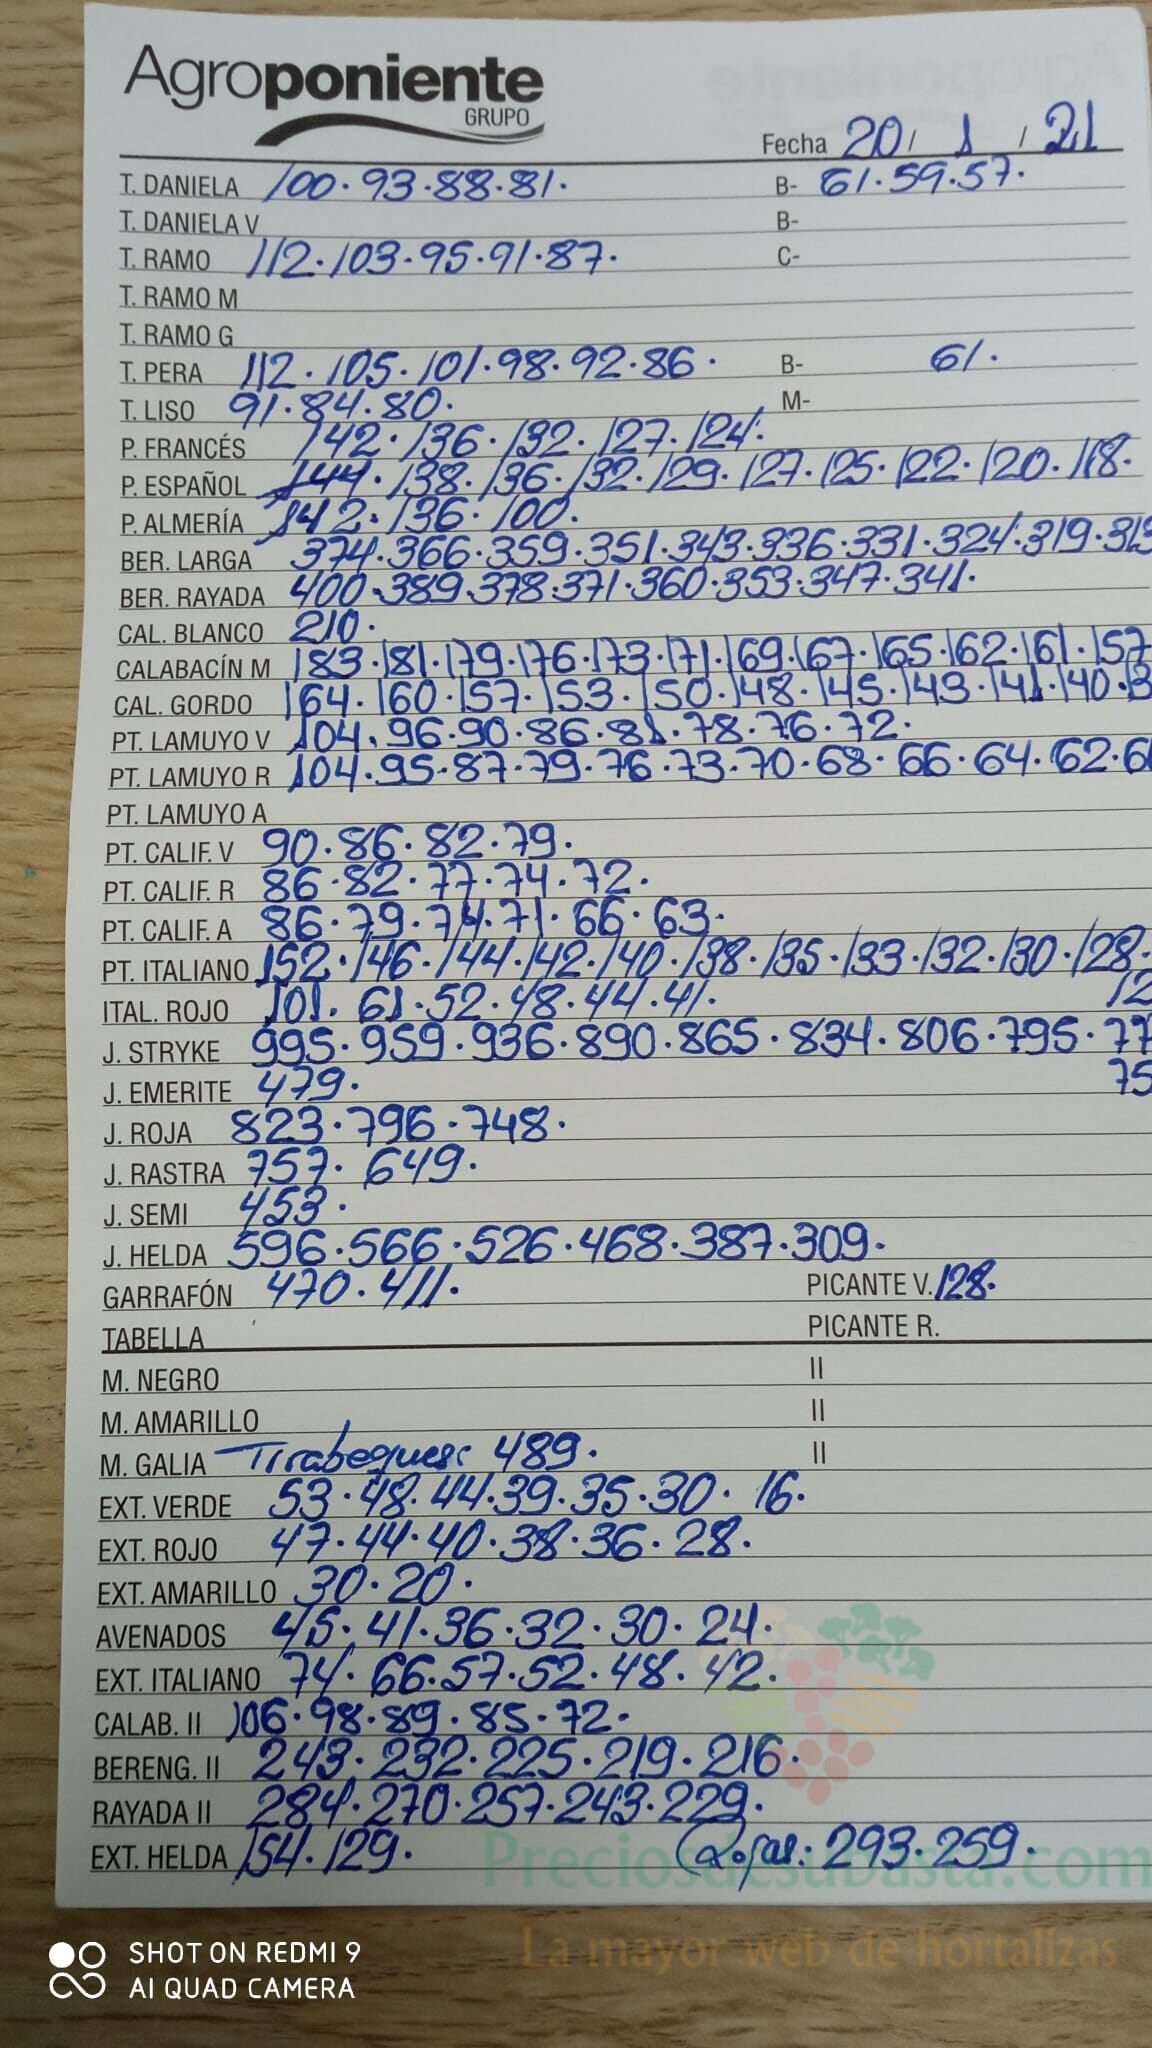 Agroponiente
GRUPO
Fecha 20 / 1 / 21
T. DANIELA 100. 93. 88. 81. B- 61. 59. 57.
T. DANIELA V B-
T. RAMO 112. 103. 95. 91. 87. C-
T. RAMO M
T. RAMO G
T. PERA 112. 105. 101. 98. 92. 86. B- 61.
T. LISO 91. 84. 80. M-
P. FRANCÉS 142. 136. 132. 127. 124.
P. ESPAÑOL 144. 138. 136. 132. 129. 127. 125. 122. 120. 118.
P. ALMERÍA 142. 136. 100.
BER. LARGA 374. 366. 359. 351. 343. 336. 331. 324. 319. 313
BER. RAYADA 400. 389. 378. 371. 360. 353. 347. 341.
CAL. BLANCO 210.
CALABACÍN M 183. 181. 179. 176. 173. 171. 169. 167. 165. 162. 161. 157
CAL. GORDO 164. 160. 157. 153. 150. 148. 145. 143. 141. 140. 13
PT. LAMUYO V 104. 96. 90. 86. 81. 78. 76. 72.
PT. LAMUYO R 104. 95. 87. 79. 76. 73. 70. 68. 66. 64. 62. 6
PT. LAMUYO A
PT. CALIF. V 90. 86. 82. 79.
PT. CALIF. R 86. 82. 77. 74. 72.
PT. CALIF. A 86. 79. 74. 71. 66. 63.
PT. ITALIANO 152. 146. 144. 142. 140. 138. 135. 133. 132. 130. 128.
ITAL. ROJO 101. 61. 52. 48. 44. 41. 12
J. STRYKE 995. 959. 936. 890. 865. 834. 806. 795. 77
J. EMERITE 479. 75
J. ROJA 823. 796. 748.
J. RASTRA 757. 649.
J. SEMI 453.
J. HELDA 596. 566. 526. 468. 387. 309.
GARRAFÓN 470. 411. PICANTE V. 128.
TABELLA PICANTE R.
M. NEGRO II
M. AMARILLO II
M. GALIA Tirabeques: 489. II
EXT. VERDE 53. 48. 44. 39. 35. 30. 16.
EXT. ROJO 47. 44. 40. 38. 36. 28.
EXT. AMARILLO 30. 20.
AVENADOS 45. 41. 36. 32. 30. 24.
EXT. ITALIANO 74. 66. 57. 52. 48. 42.
CALAB. II 106. 98. 89. 85. 72.
BERENG. II 243. 232. 225. 219. 216.
RAYADA II 284. 270. 257. 243. 229.
EXT. HELDA 154. 129. 293. 259.
Preciosdesubasta.com
La mayor web de hortalizas
SHOT ON REDMI 9
AI QUAD CAMERA